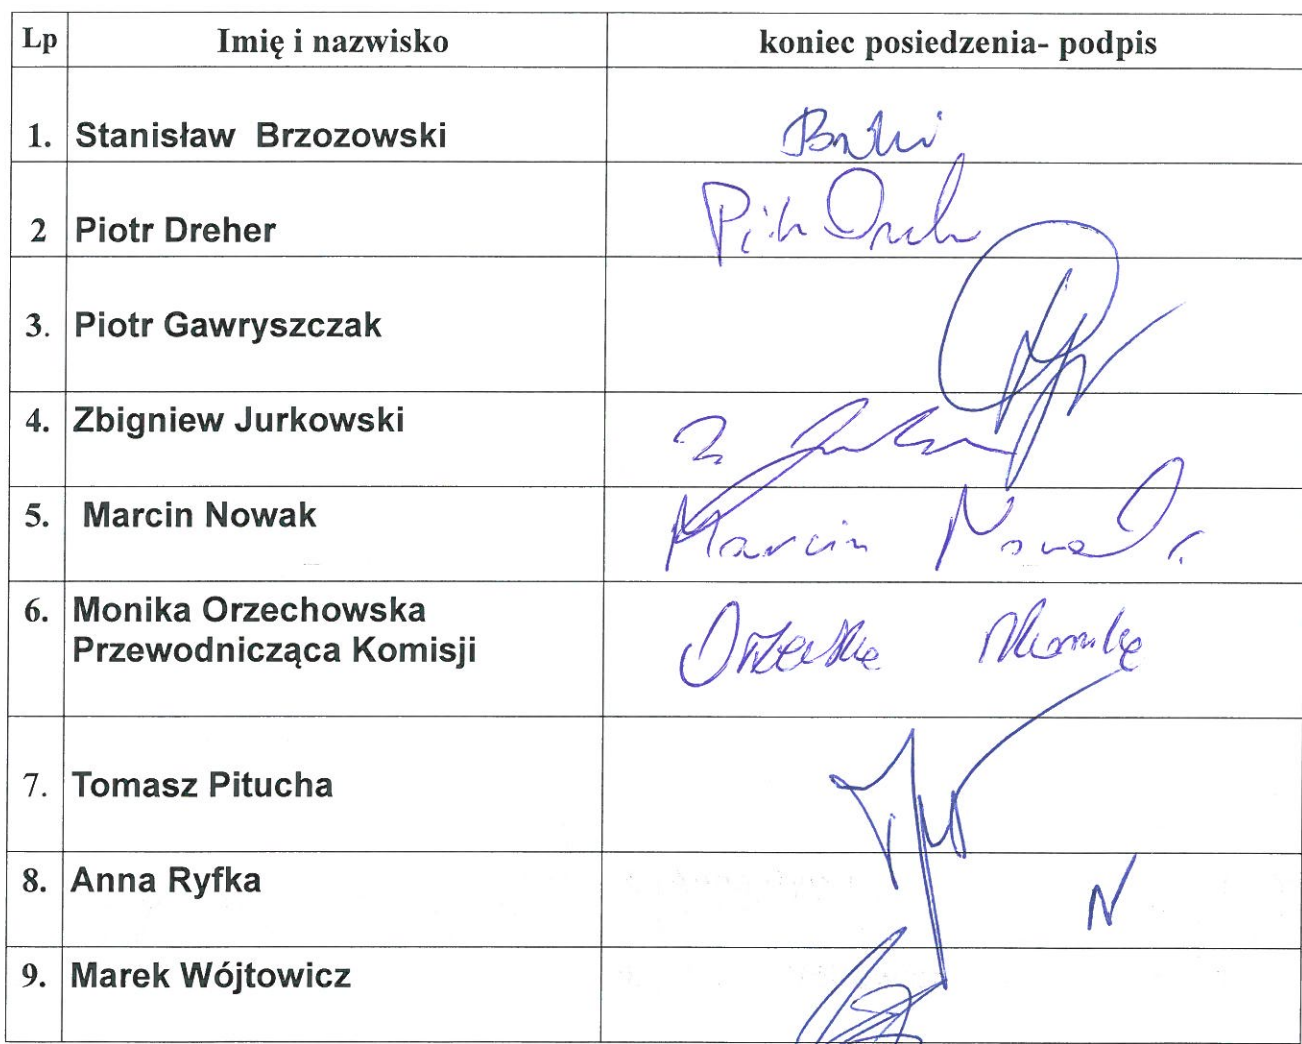 Lp Imię i nazwisko koniec posiedzenia- podpis
1. Stanisław Brzozowski
2 Piotr Dreher
3. Piotr Gawryszczak
4. Zbigniew Jurkowski
5. Marcin Nowak Marcin Nowak
6. Monika Orzechowska
Przewodnicząca Komisji
7. Tomasz Pitucha
8. Anna Ryfka N
9. Marek Wójtowicz